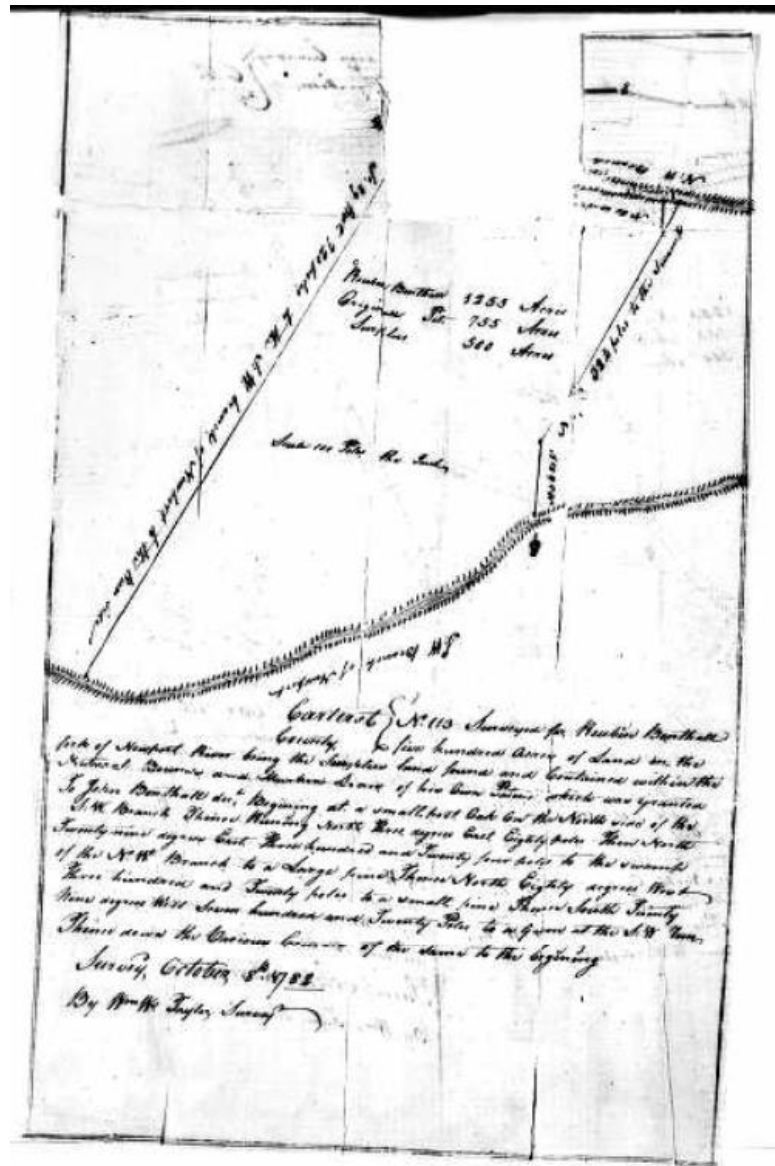 N.W. Branch
S. 29 West 720 poles to the S.W branch of Newport to the Run side
Reuben Benthall 1255 Acres
Original Pat. 755 Acres
Surplus 500 Acres
324 poles to the Swamp
Scale 100 Poles the Inch
SW Branch of Newport
Carteret County } No. 113 Surveyed for Reubin Benthall
five hundred Acres of Land on the
fork of Newport River being the Surplus land found and Contained within the
Natural Bounds and Marken Lines of his Own Patent which was granted
To John Benthall decd. Begining at a small post Oak on the North side of the
S.W. Branch Thence Runing North Three degrees East Eighty poles Then North
Twenty nine degrees East Three hundred and Twenty four poles to the swamp
of the N.W. Branch to a Large pine Thence North Eighty degrees West
Three hundred and Twenty poles to a small pine Thence South Twenty
Nine degrees West Seven hundred and Twenty Poles to a Gum at the S.W. Run
Thence down the Various Courses of the same to the begining
Survey, October
By Wm. Taylor Survey